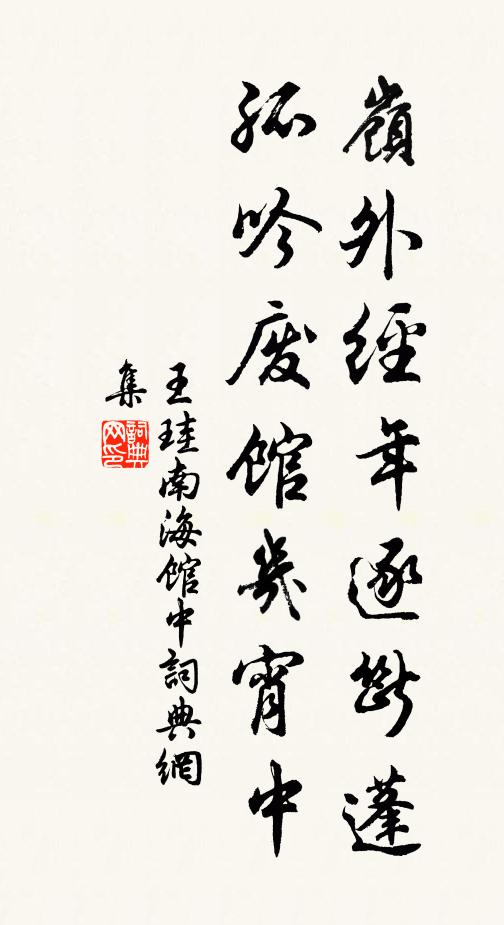 嶺外經年逐斷蓬
孤吟废館幾宵中
王珪南海館中詞典網
集
詞典网印